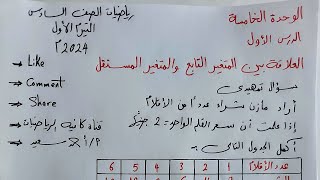 الوحدة الخامسة
الدرس الأول
رياضيات الصف السادس
الترم الأول
2024 م
العلاقة بين المتغير التابع والمتغير المستقل
سؤال تمهيدى
أراد مازن شراء عددًا من الأقلام
إذا علمت أن سعر القلم الواحد = 2 جنيه
أكمل الجدول التالى :-
→ Like
→ Comment
→ Share
→ قناة كاتيه للرياضيات
سعيد
عدد الأقلام 1 2 3 4 5 6